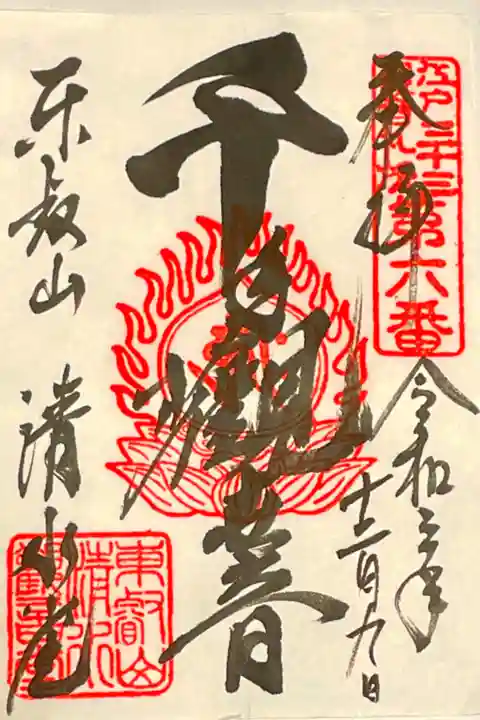 奉拝
江戸三十三観音札所第六番
令和三年
十二月九日
千手観世音
東叡山 清水堂
東叡山清水観音堂